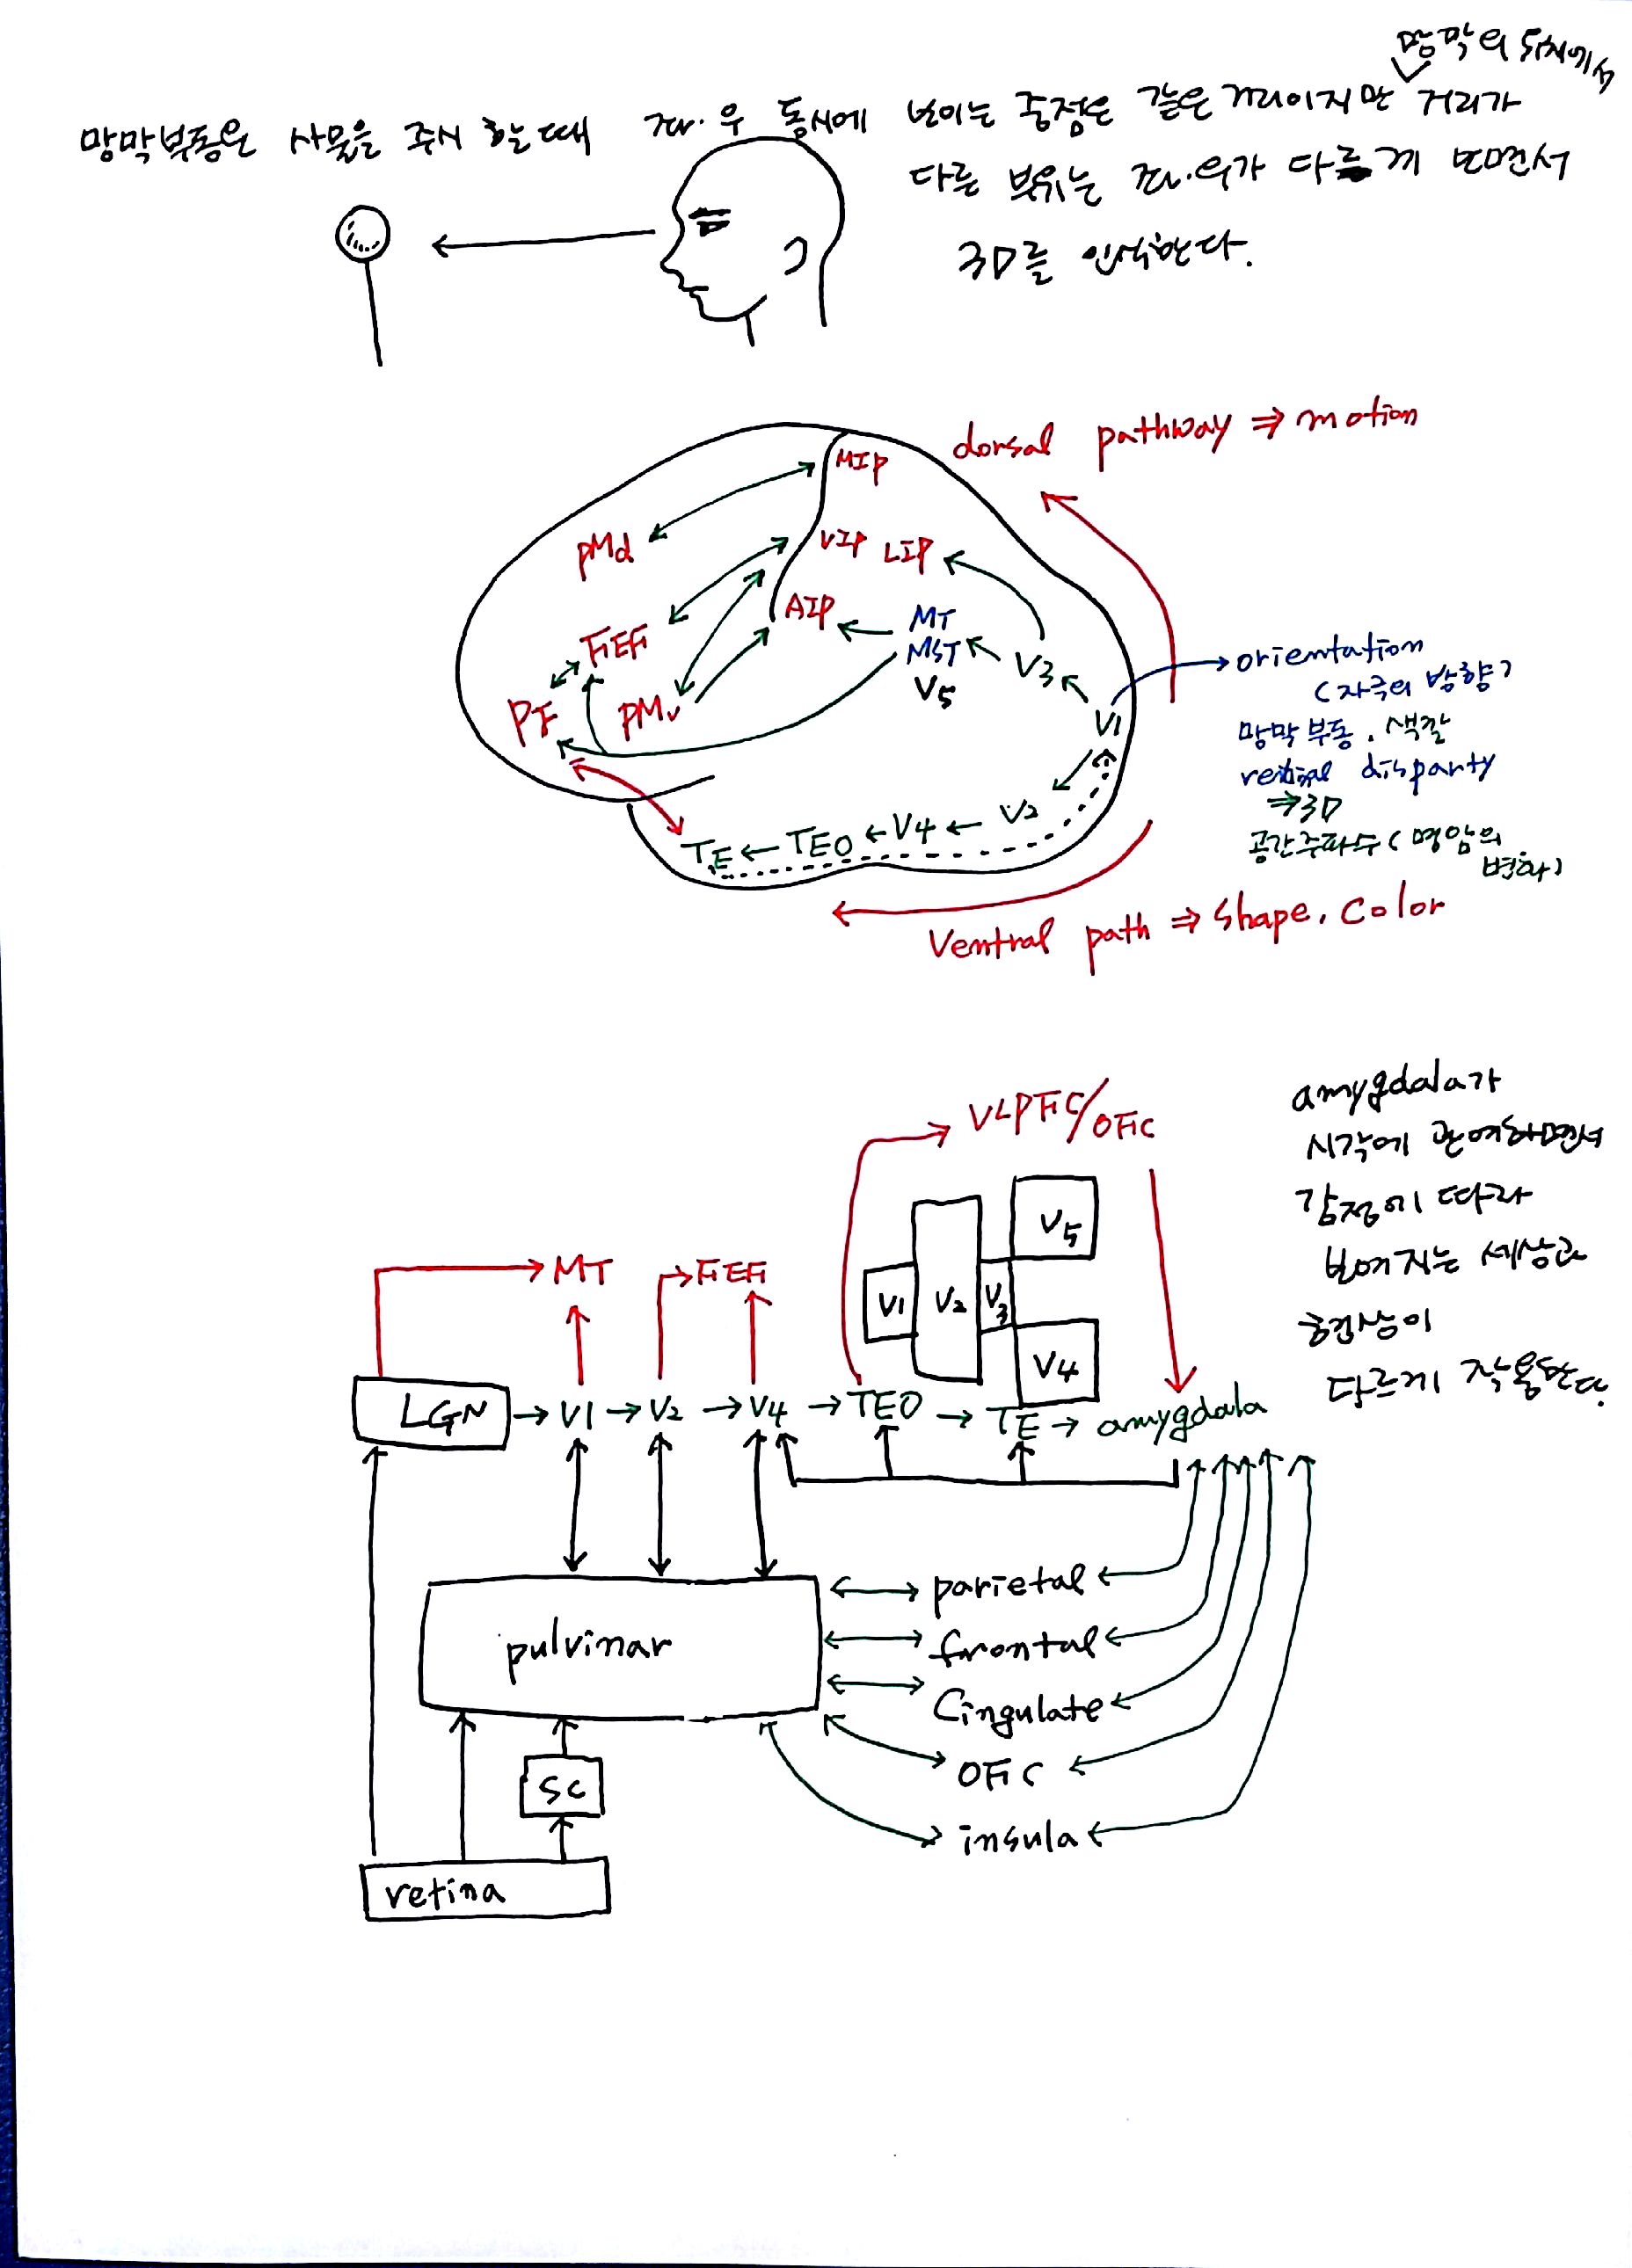 망막의 위치에서
망막부동은 사물을 주시 할때 좌.우 동시에 보이는 중점은 같은 거리이지만 거리가
다른 부위는 좌.우가 다르게 보면서
3D를 인식한다.
dorsal pathway ⇒ motion
MIP
PMd
VIP LIP
AIP
MT
FEF
MST
V3
V5
PF
PMv
V1
orientation
(자극의 방향)
망막부동. 색깔
disparty
⇒3D
공간주파수(명암의
변화)
TE ← TEO ← V4 ← V2
Ventral path ⇒ shape. color
VLPFC/OFC
amygdala가
시각에 관여하면서
감정에 따라
보여지는 세상과
환상이
다르게 작용한다.
V5
V1 V2 V3
V4
MT
FEF
LGN → V1 → V2 → V4 → TEO → TE → amygdala
parietal
pulvinar
frontal
Cingulate
OFC
SC
insula
retina